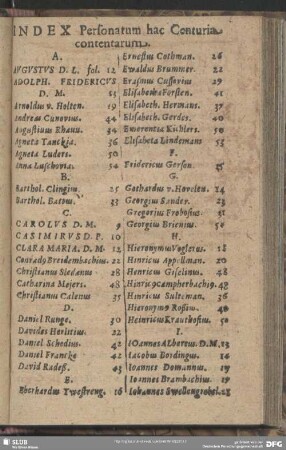 INDEX Personarum hac Centuria
contentarum.
A.
AVGVSTVS D. L. fol. 12
ADOLPH. FRIDERICVS
D. M. 13
Arnoldus v. Holten. 19
Andreas Cunovius. 44
Augustinus Rhanu. 34
Agneta Tanckja. 36
Agneta Luders. 50
Anna Luschovia. 54
B.
Barthol. Clingius. 25
Barthol. Batous. 33
C.
CAROLVS D. M. 9
CASIMIRVS D. P. 10
CLARA MARIA. D. M. 12
Conrado Breidembachius. 22
Christianus Sledanus. 28
Catharina Mejers. 48
Christianus Calenus 35
D.
Daniel Runge. 30
Davides Herlitius. 22
Daniel Schedius. 42
Daniel Francke 42
David Radeß. 43
E.
Eberhardus Twestreng. 16
Ernestus Cothman. 26
Ewaldus Brummer. 22
Erasmus Cussovius 29
Elisabetha Forsten. 41
Elisabeth. Hermans. 37
Elisabeth. Gerdes. 40
Emerentia Kichlers. 50
Elisabeta Lindemans 53
F.
Fridericus Gersen. 25
G.
Gothardus v. Hovelen. 14
Georgius Sander. 23
Gregorius Frobosius 31
Georgius Brienius. 50
H.
Hieronymus Voglerus. 18
Hinricus Appelman. 20
Hinricus Giselinus. 48
Hinricus Campherbachiꝰ. 48
Hinricus Sulteman. 36
Hieronymꝰ Rosius. 49
Heinricus Krauthosius. 50
I.
IOannes Albertus. D. M. 13
Iacobus Bordingus. 16
Ioannes Domannus. 17
Ioannes Brambachius. 19
Iohannes Swollengrebel. 23
SLUB
DFG